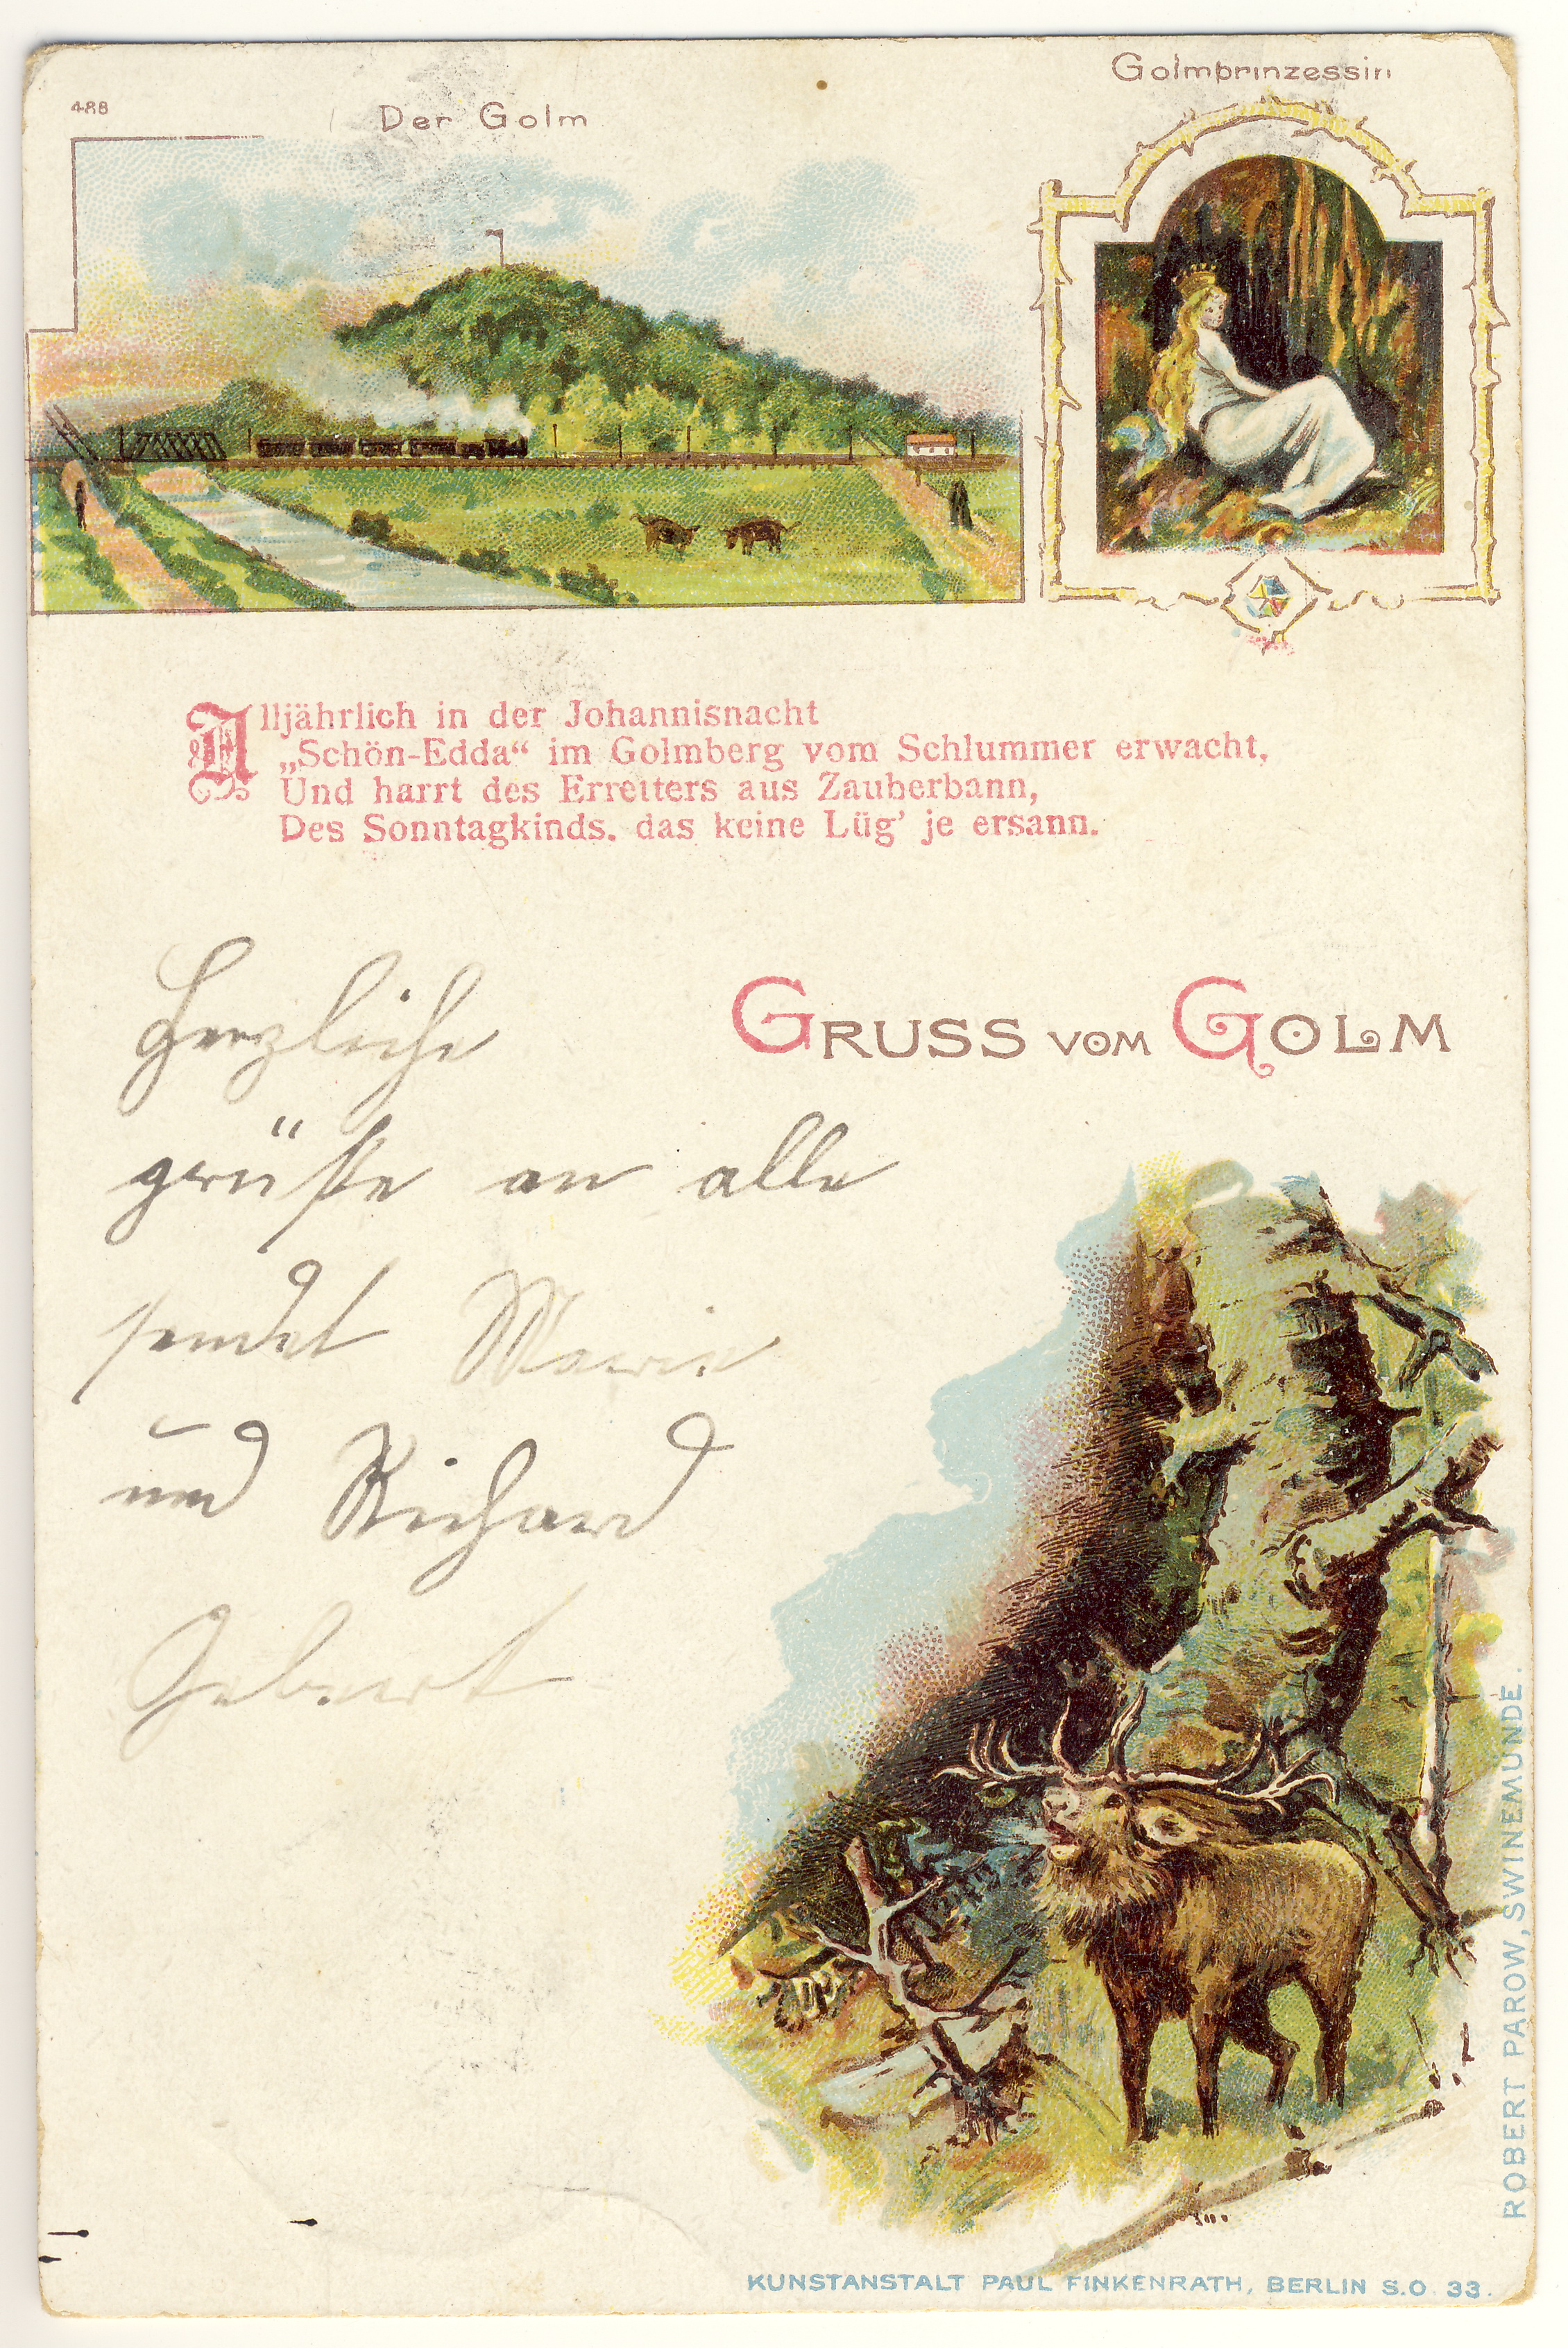 488
Der Golm
Golmprinzessin
Alljährlich in der Johannisnacht
„Schön-Edda“ im Golmberg vom Schlummer erwacht,
Und harrt des Erretters aus Zauberbann,
Des Sonntagkinds, das keine Lüg’ je ersann.
GRUSS VOM GOLM
Herzliche
grüße an alle
sendet Marie
und Richard
Gebert
ROBERT PAROW, SWINEMÜNDE.
KUNSTANSTALT PAUL FINKENRATH, BERLIN S.O. 33.